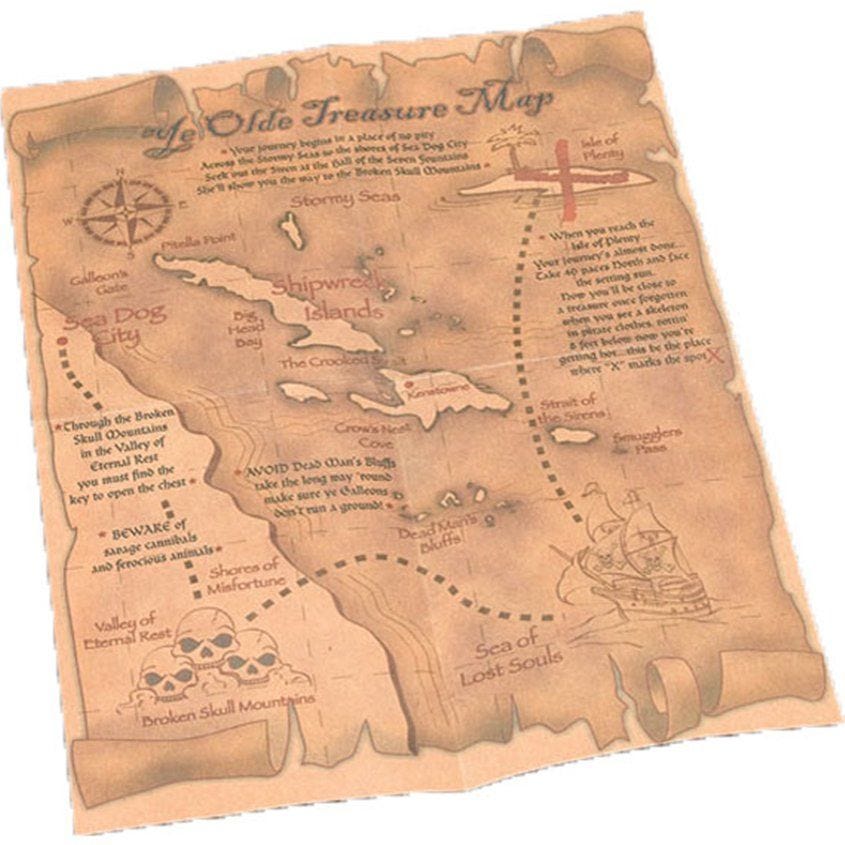 Ye Olde Treasure Map
* Your journey begins in a place of no pity
Across the Stormy Seas to the shores of Sea Dog City
Seek out the Siren at the Hall of the Seven Fountains
She'll show you the way to the Broken Skull Mountains *
Isle of
Plenty
N
W
E
S
Stormy Seas
Pitella Point
Galleon's
Gate
Shipwreck
Islands
Sea Dog
City
Big
Head
Bay
* When you reach the
Isle of Plenty
Your journey's almost done...
Take 40 paces North and face
the setting sun.
Now you'll be close to
a treasure once forgotten
when you see a skeleton
in pirate clothes, rottin'
6 feet below now you're
getting hot...this be the place
where "X" marks the spot X
The Crooked
Kenstowne
Crow's Nest
Cove
Strait of
the Sirens
Smugglers
Pass
* Through the Broken
Skull Mountains
in the Valley of
Eternal Rest
you must find the
key to open the chest *
* AVOID Dead Man's Bluffs
take the long way 'round
make sure ye Galleons
don't run a ground! *
* BEWARE of
savage cannibals
and ferocious animals *
Dead Man's
Bluffs
Shores of
Misfortune
Valley of
Eternal Rest
Sea of
Lost Souls
Broken Skull Mountains